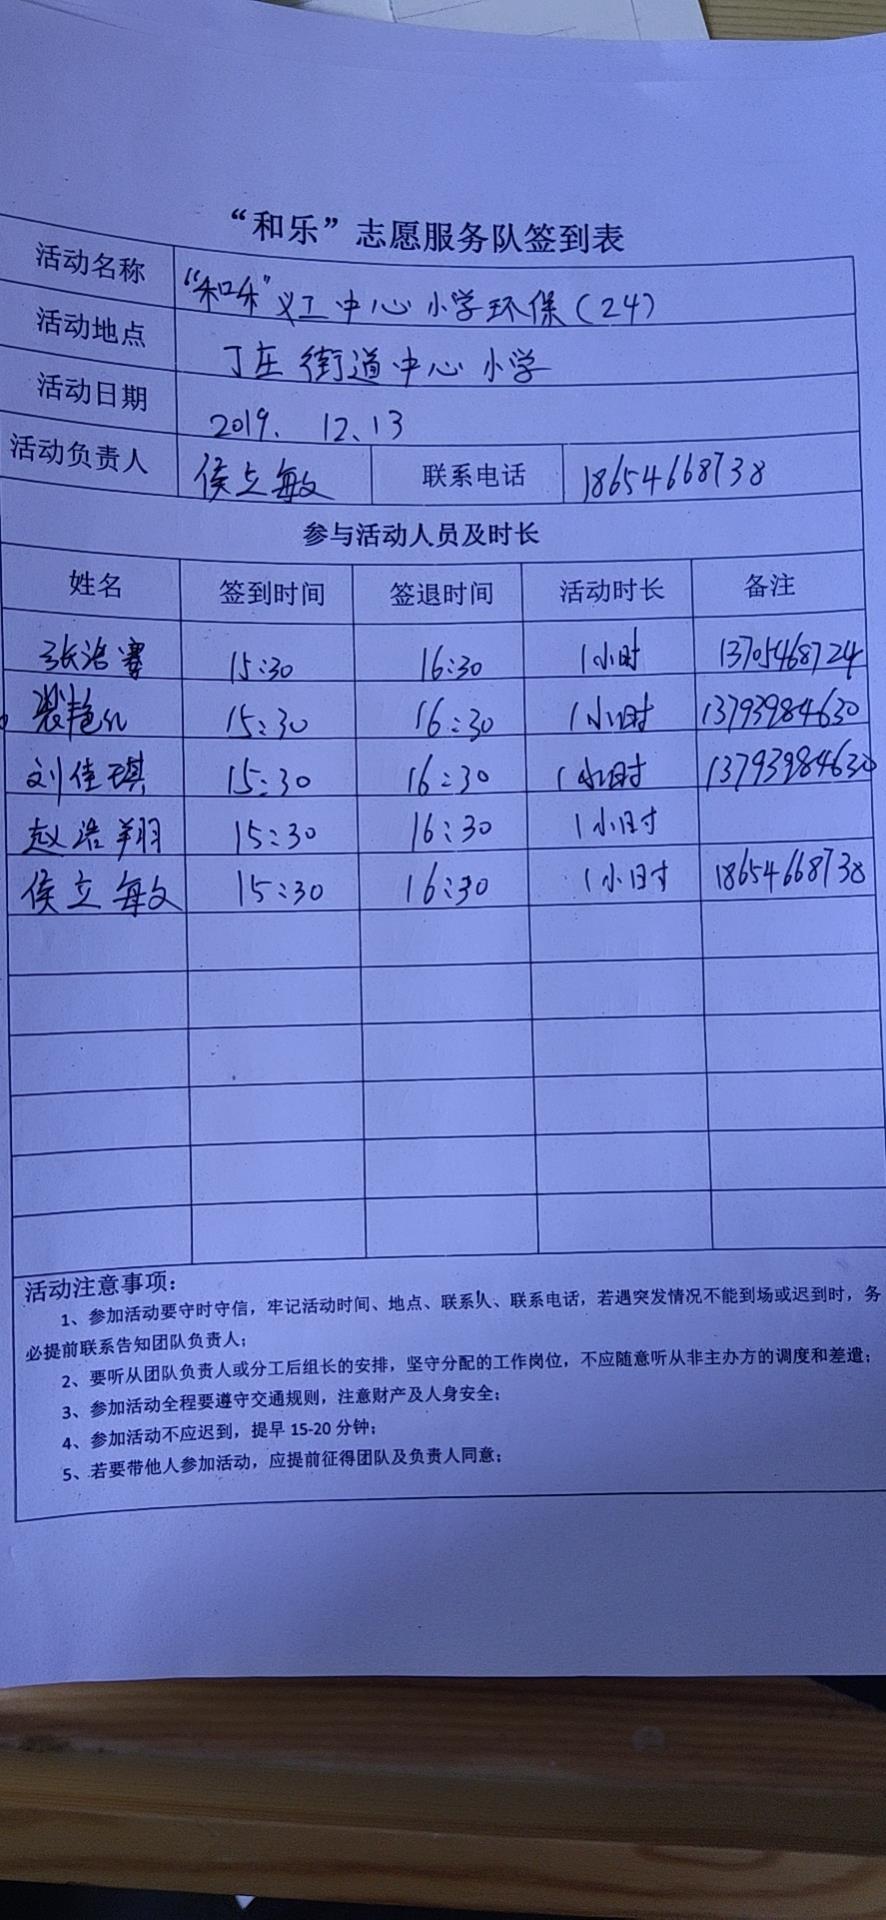 “和乐”志愿服务队签到表
活动名称 “和乐”义工中心小学环保（24）
活动地点 丁庄街道中心小学
活动日期 2019.12.13
活动负责人 侯立敏 联系电话 18654668738
参与活动人员及时长
姓名 签到时间 签退时间 活动时长 备注
张浩骞 15:30 16:30 1小时 13705468724
裴艳红 15:30 16:30 1小时 13793984630
刘佳琪 15:30 16:30 1小时 13793984630
赵浩翔 15:30 16:30 1小时
侯立敏 15:30 16:30 1小时 18654668738
活动注意事项：
1、参加活动要守时守信，牢记活动时间、地点、联系人、联系电话，若遇突发情况不能到场或迟到时，务
必提前联系告知团队负责人；
2、要听从团队负责人或分工后组长的安排，坚守分配的工作岗位，不应随意听从非主办方的调度和差遣；
3、参加活动全程要遵守交通规则，注意财产及人身安全；
4、参加活动不应迟到，提早 15-20 分钟；
5、若要带他人参加活动，应提前征得团队及负责人同意；